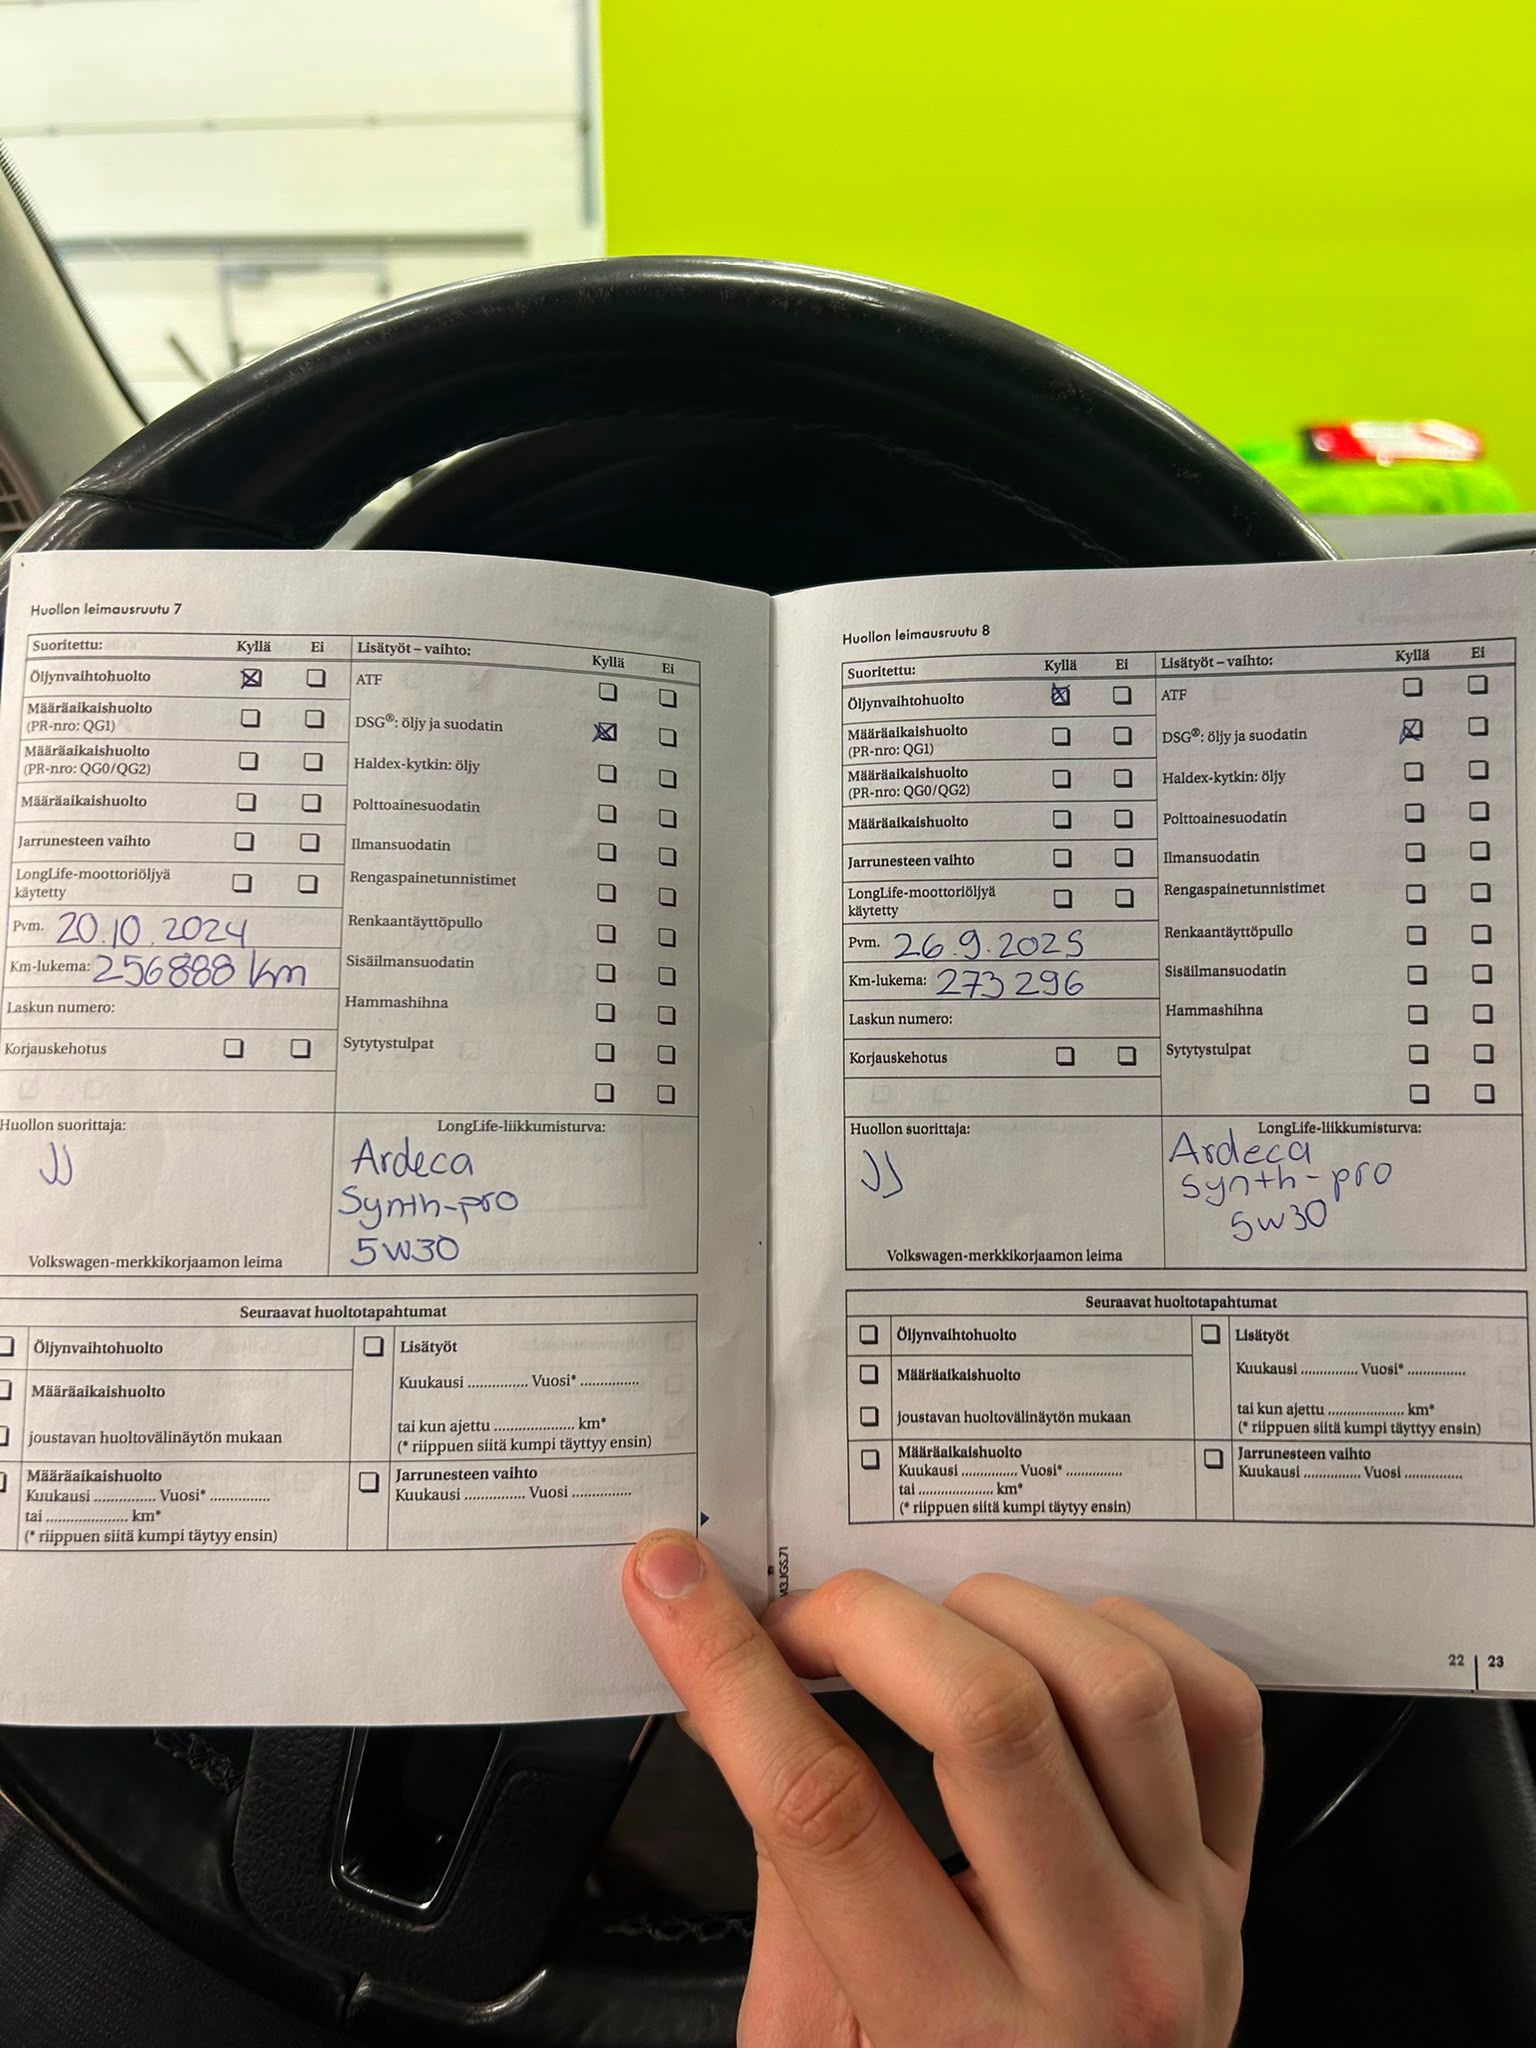 Huollon leimausruutu 7
Suoritettu: Kyllä Ei
Öljynvaihtohuolto
Määräaikaishuolto
(PR-nro: QG1)
Määräaikaishuolto
(PR-nro: QG0/QG2)
Määräaikaishuolto
Jarrunesteen vaihto
LongLife-moottoriöljyä
käytetty
Pvm. 20.10.2024
Km-lukema: 256888 km
Laskun numero:
Korjauskehotus
Lisätyöt – vaihto: Kyllä Ei
ATF
DSG®: öljy ja suodatin
Haldex-kytkin: öljy
Polttoainesuodatin
Ilmansuodatin
Rengaspainetunnistimet
Renkaantäyttöpullo
Sisäilmansuodatin
Hammashihna
Sytytystulpat
Huollon suorittaja:
JJ
Volkswagen-merkkikorjaamon leima
LongLife-liikkumisturva:
Ardeca
Synth-pro
5W30
Seuraavat huoltotapahtumat
Öljynvaihtohuolto
Määräaikaishuolto
joustavan huoltovälinäytön mukaan
Määräaikaishuolto
Kuukausi ............... Vuosi* ..............
tai ..................... km*
(* riippuen siitä kumpi täytyy ensin)
Lisätyöt
Kuukausi ............... Vuosi* ..............
tai kun ajettu .................... km*
(* riippuen siitä kumpi täyttyy ensin)
Jarrunesteen vaihto
Kuukausi ............... Vuosi ..............
Huollon leimausruutu 8
Suoritettu: Kyllä Ei
Öljynvaihtohuolto
Määräaikaishuolto
(PR-nro: QG1)
Määräaikaishuolto
(PR-nro: QG0/QG2)
Määräaikaishuolto
Jarrunesteen vaihto
LongLife-moottoriöljyä
käytetty
Pvm. 26.9.2025
Km-lukema: 273 296
Laskun numero:
Korjauskehotus
Lisätyöt – vaihto: Kyllä Ei
ATF
DSG®: öljy ja suodatin
Haldex-kytkin: öljy
Polttoainesuodatin
Ilmansuodatin
Rengaspainetunnistimet
Renkaantäyttöpullo
Sisäilmansuodatin
Hammashihna
Sytytystulpat
Huollon suorittaja:
JJ
Volkswagen-merkkikorjaamon leima
LongLife-liikkumisturva:
Ardeca
Synth-pro
5W30
Seuraavat huoltotapahtumat
Öljynvaihtohuolto
Määräaikaishuolto
joustavan huoltovälinäytön mukaan
Määräaikaishuolto
Kuukausi ............... Vuosi* ..............
tai ..................... km*
(* riippuen siitä kumpi täytyy ensin)
Lisätyöt
Kuukausi ............... Vuosi* ..............
tai kun ajettu .................... km*
(* riippuen siitä kumpi täyttyy ensin)
Jarrunesteen vaihto
Kuukausi ............... Vuosi ..............
22 | 23